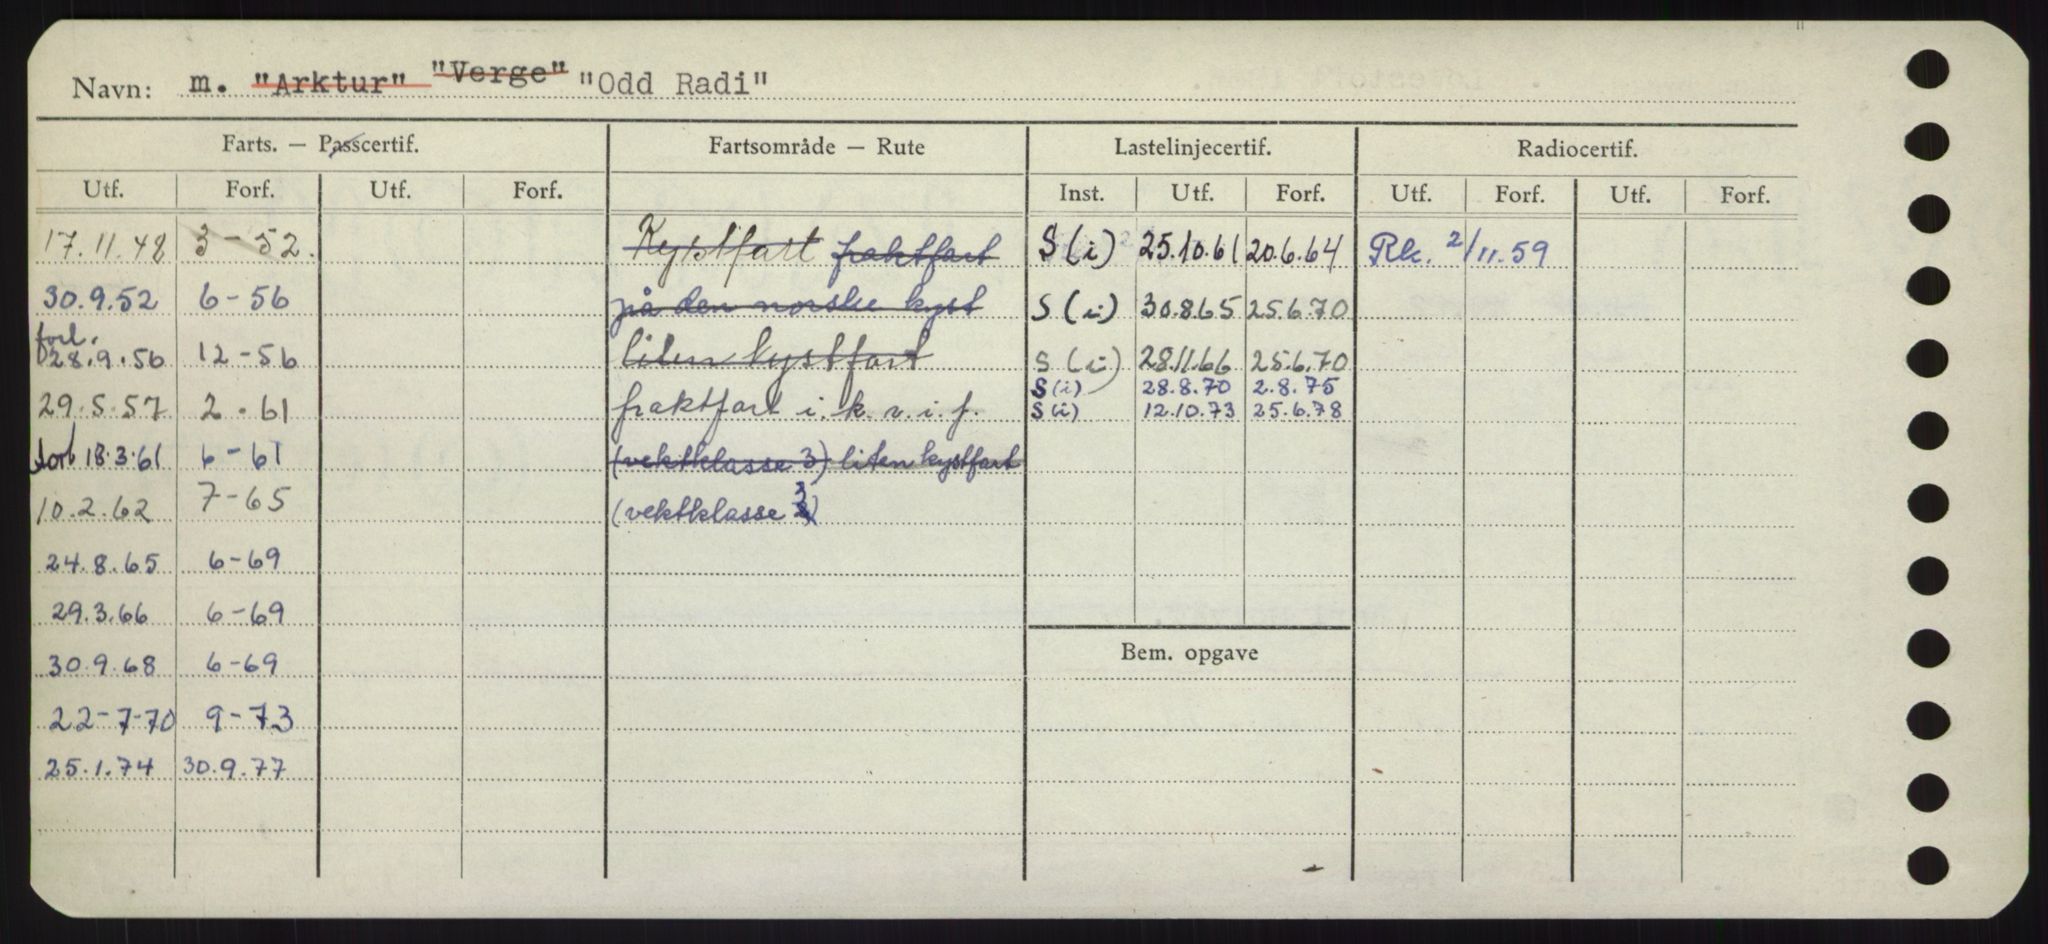 Navn: m. "Arktur" "Verge" "Odd Radi"
Farts. — Passcertif. Fartsområde — Rute Lastelinjecertif. Radiocertif.
Utf. Forf. Utf. Forf. Inst. Utf. Forf. Utf. Forf. Utf. Forf.
17.11.48 3-52. Kystfart fraktfart S (i) 25.10.61 20.6.64 Rk. 2/11.59
30.9.52 6-56 på den norske kyst S (i) 30.8.65 25.6.70
forl.
28.9.56 12-56 liten kystfart S (i) 28.11.66 25.6.70
S (i) 28.8.70 2.8.75
29.5.57 2.61 fraktfart i. k. v. i. f. S (i) 12.10.73 25.6.78
forl 18.3.61 6-61 (vektklasse 3) liten kystfart
10.2.62 7-65 (vektklasse 3)
24.8.65 6-69
29.3.66 6-69
30.9.68 6-69
Bem. opgave
22-7-70 9-73
25.1.74 30.9.77